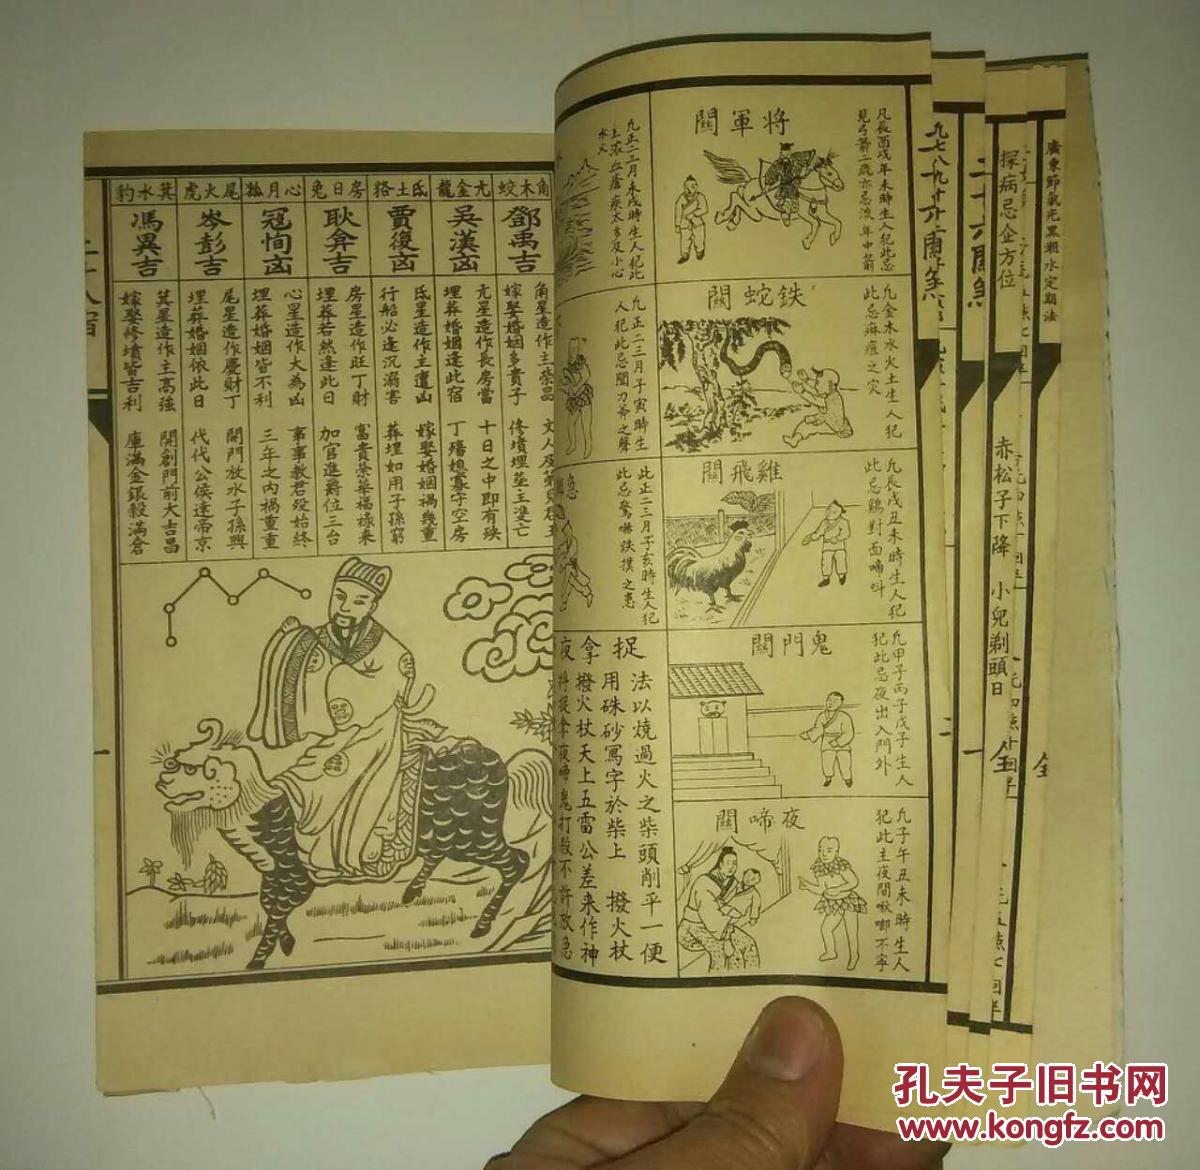 廣東節氣光黑潮水定期法
探病忌企方位
赤松子下降
小兒剃頭日
全
全
二十六關煞
將軍關
凡辰酉戌年未時生人犯此忌
見弓箭二歲亦忌流年中箭
鉄蛇關
凡金木水火土生人犯
此忌麻痘之灾
雞飛關
凡辰戌丑未時生人犯
此忌鷄對面啼叫
鬼門關
凡甲子丙子戊子生人
犯此忌夜出入門外
夜啼關
凡子午丑未時生人
犯此主夜間啾唧不寧
凡正二三月未戌時生人犯此
主浓血瘡疾太多及小心
水火
凡正二三月子寅時生
人犯此忌聞刀斧之聲
此正二三月子亥時生人犯
此忌驚嚇跌撲之患
捉拿夜
法以燒過火之柴頭削平一便
用硃砂寫字於柴上 撥火杖
撥火杖天上五雷公差来作神
將捉拿夜啼鬼打殺不許放急
角木蛟
鄧禹吉
角星造作主榮昌
嫁娶婚姻多貴子
修墳埋葬主雙亡
亢金龍
吳漢凶
亢星造作長房當
埋葬婚姻逢此宿
十日之中即有殃
丁殤媳寡守空房
氐土貉
賈復凶
氐星造作主遭凶
行船必逢沉溺害
嫁娶婚姻禍幾重
葬埋如用子孫窮
房日兔
耿弇吉
房星造作旺丁財
埋葬若然逢此日
富貴榮華福祿来
加官進爵位三台
心月狐
寇恂凶
心星造作大為凶
埋葬婚姻皆不利
事事教君殁始終
三年之内禍重重
尾火虎
岑彭吉
尾星造作慶財丁
埋葬婚姻依此日
開門放水子孫興
代代公侯達帝京
箕水豹
馮異吉
箕星造作主高強
嫁娶修墳皆吉利
開創門前大吉昌
庫滿金銀穀滿倉
孔夫子旧书网
www.kongfz.com